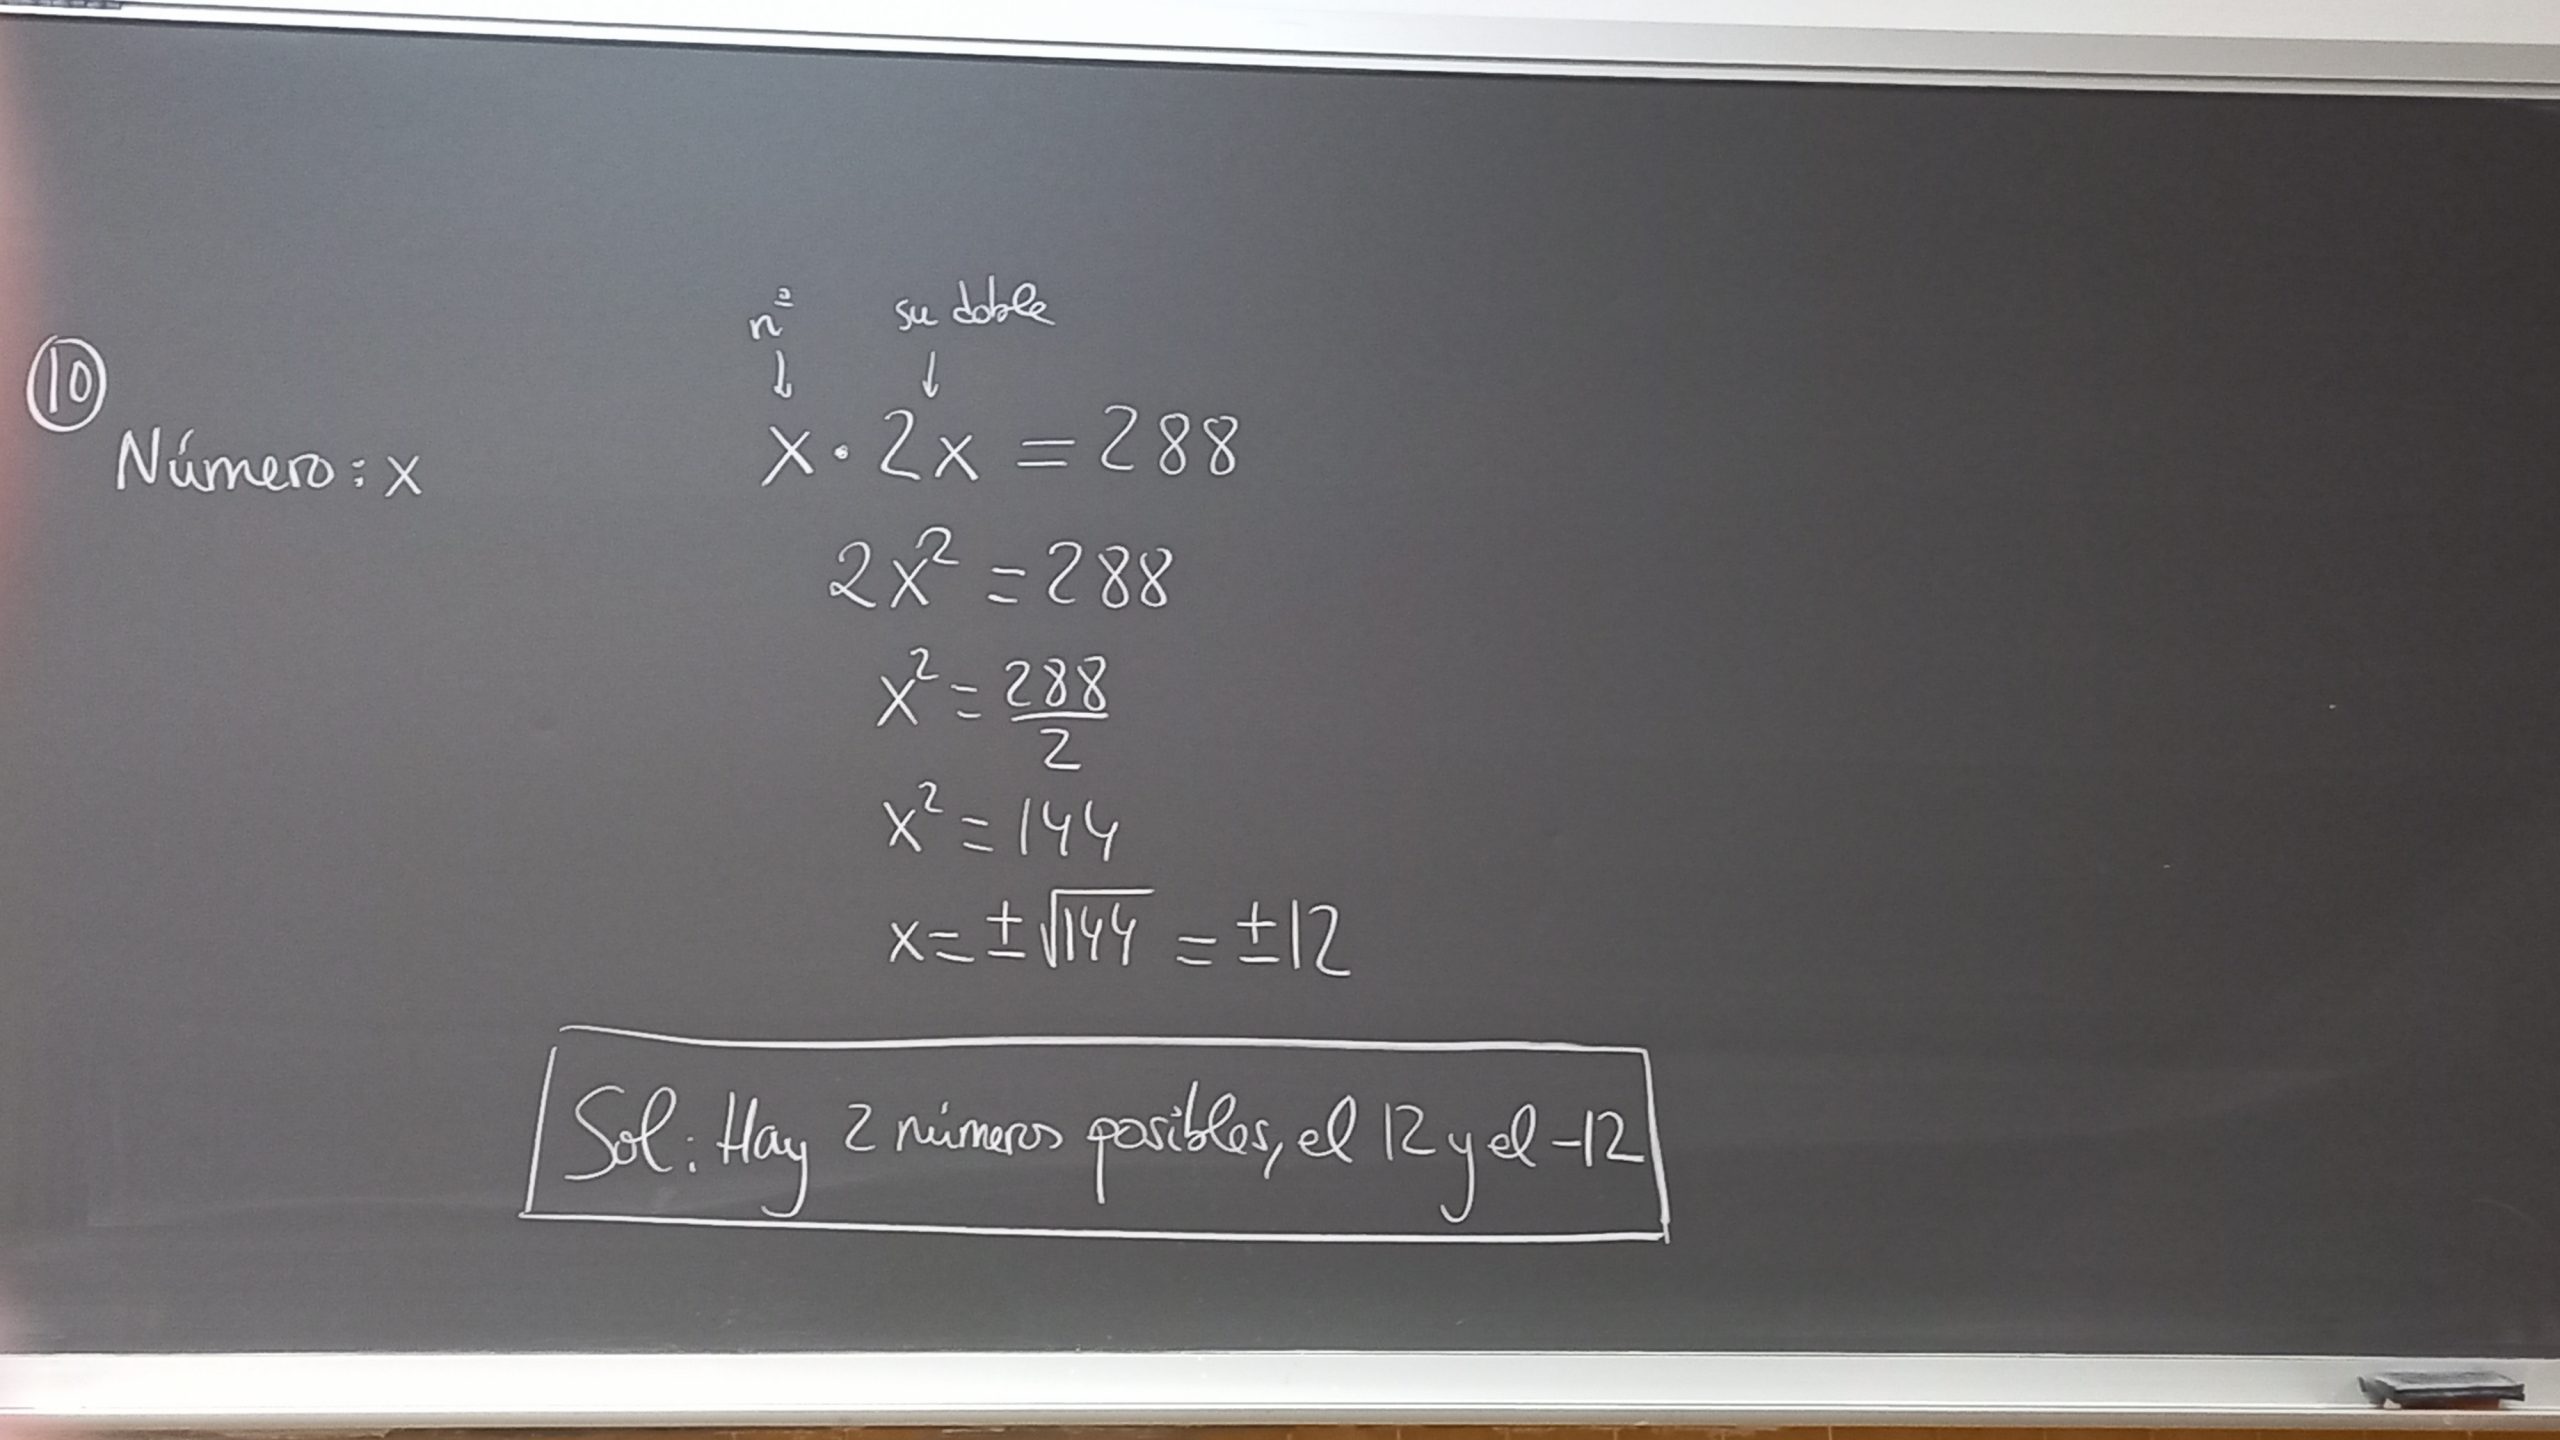 10
nº su doble
↓ ↓
Número: x
x · 2x = 288
2x² = 288
x² = 288/2
x² = 144
x = ±√144 = ±12
Sol: Hay 2 números posibles, el 12 y el -12